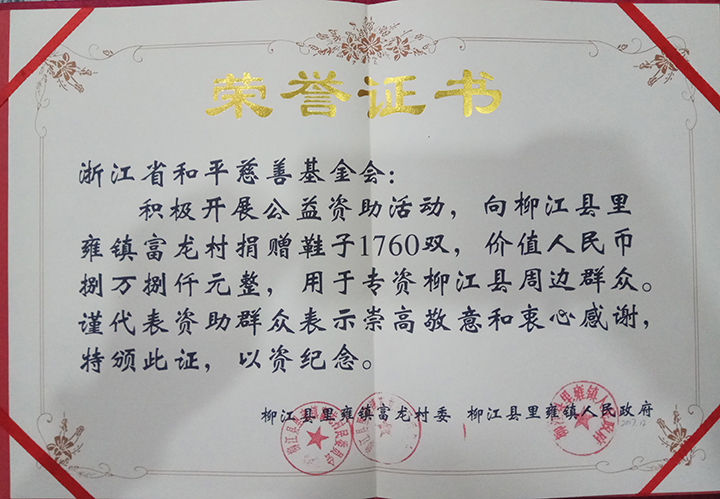 荣誉证书
浙江省和平慈善基金会：
积极开展公益资助活动，向柳江县里
雍镇富龙村捐赠鞋子1760双，价值人民币
捌万捌仟元整，用于专资柳江县周边群众。
谨代表资助群众表示崇高敬意和衷心感谢，
特颁此证，以资纪念。
柳江县里雍镇富龙村委 柳江县里雍镇人民政府
柳江县里雍镇人民政府